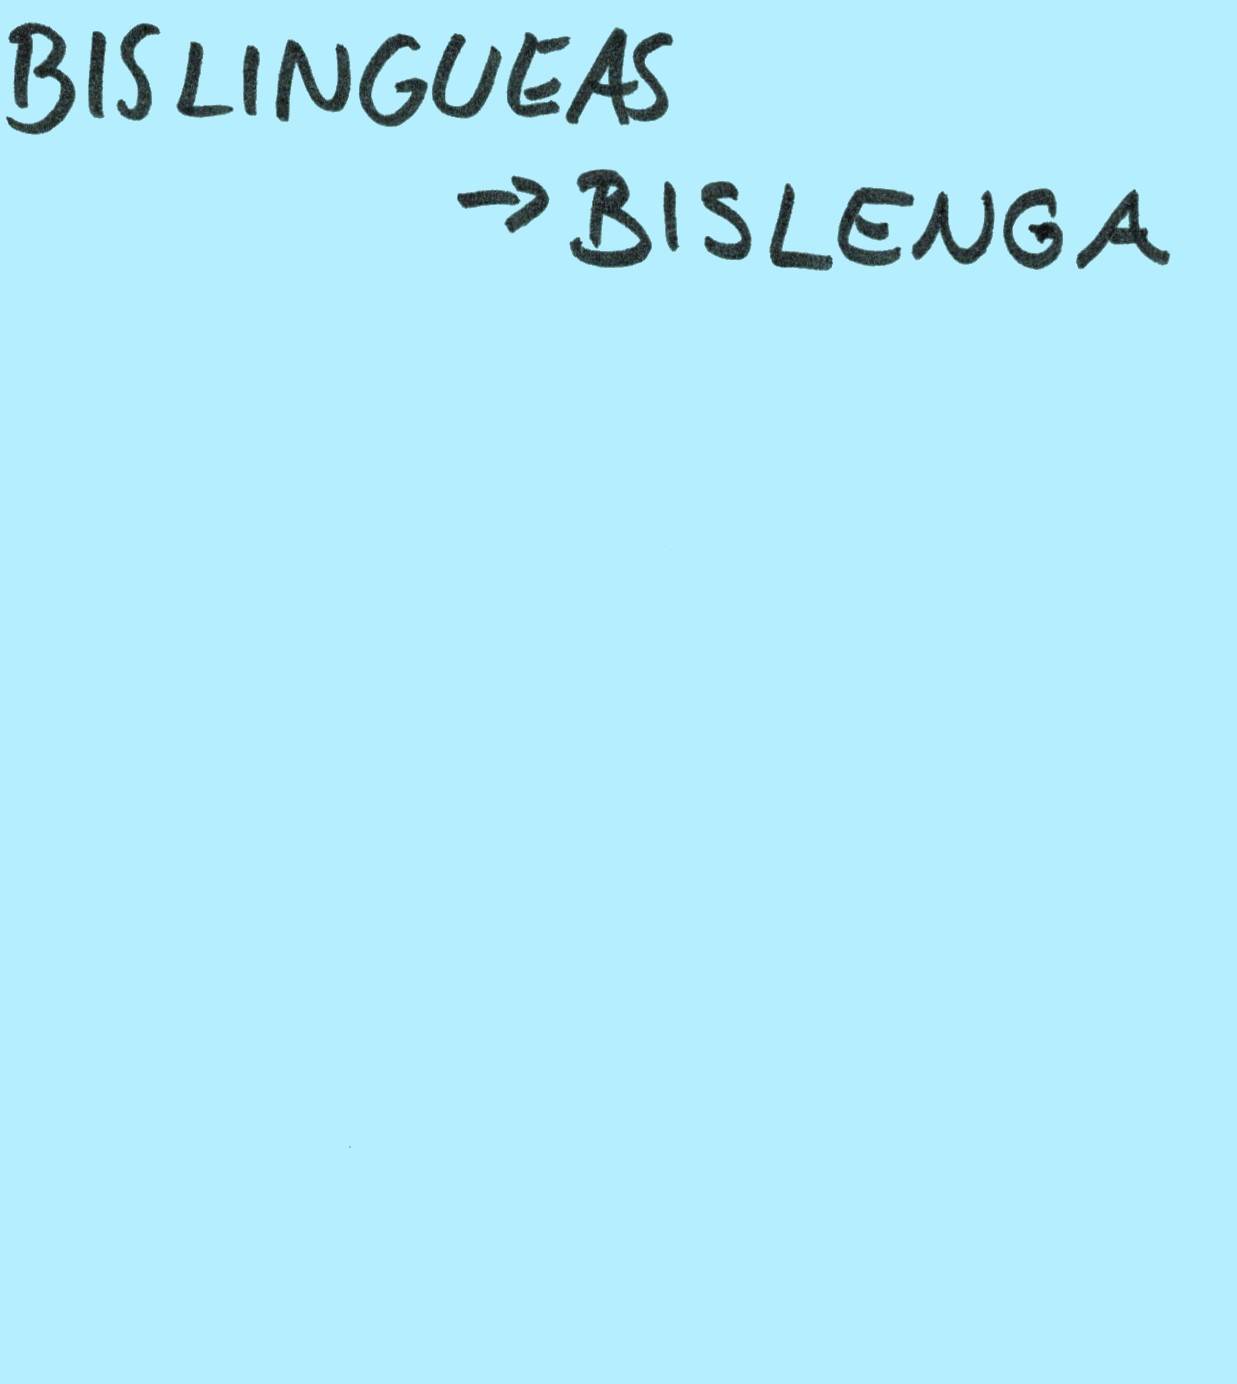 BISLINGUEAS
→ BISLENGA